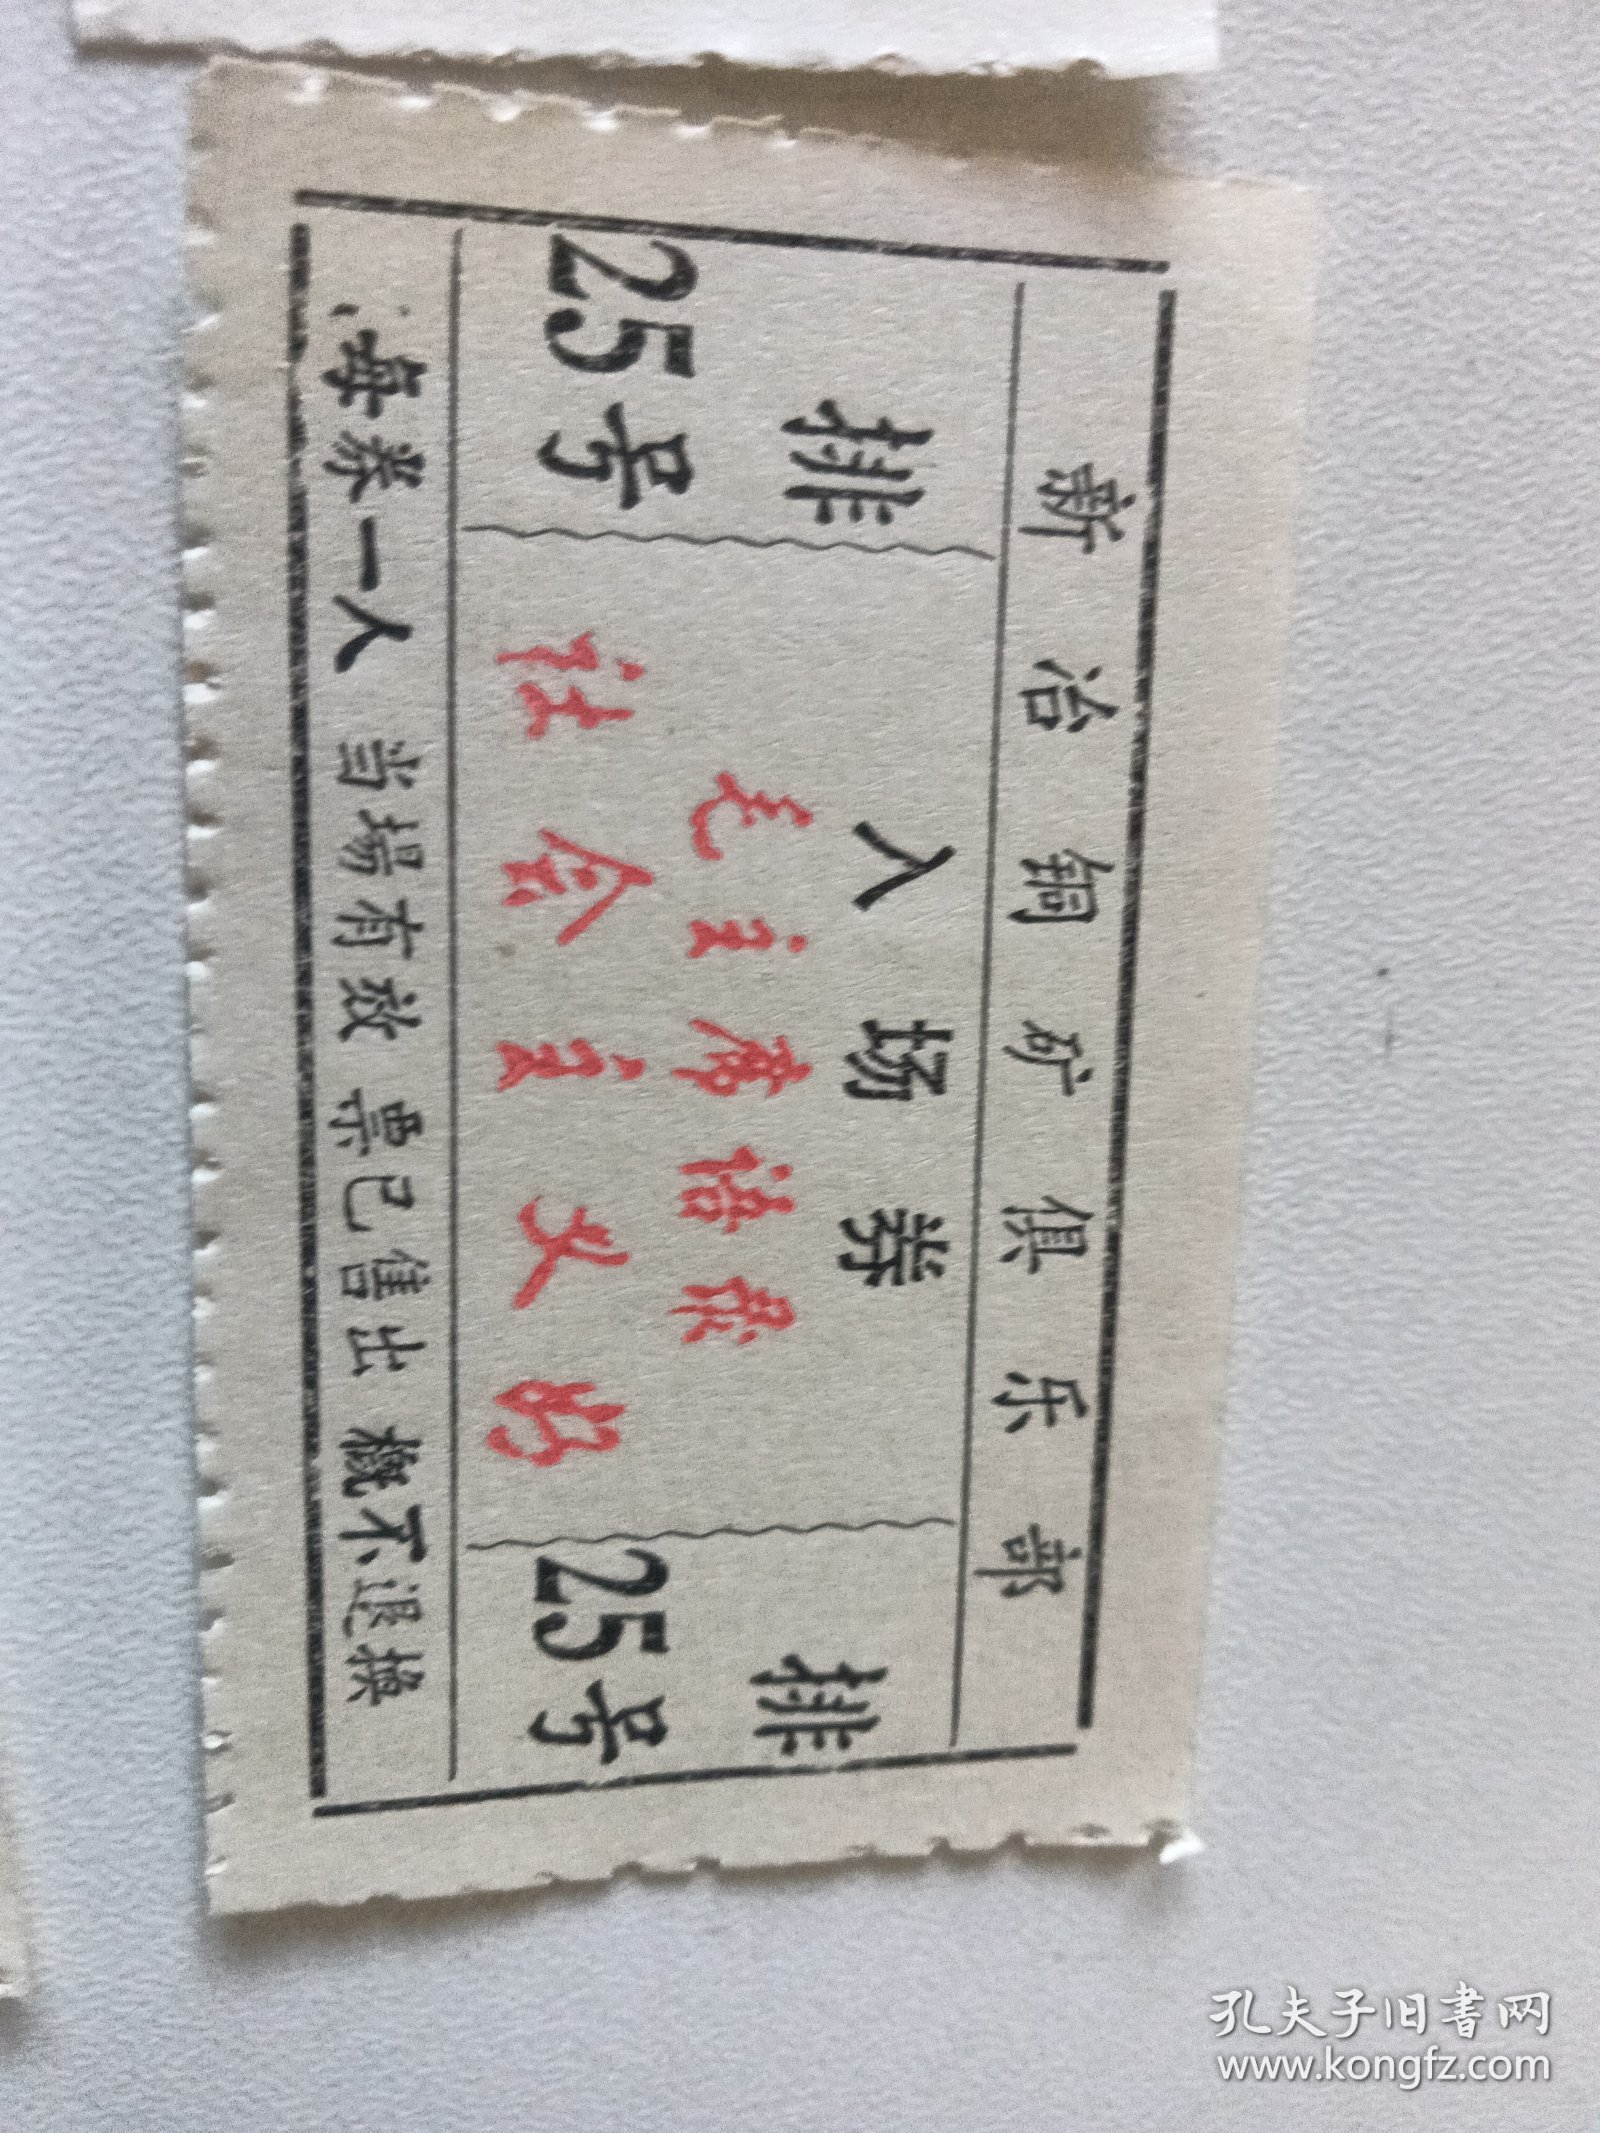 新冶铜矿俱乐部
排
25号
入场券
毛主席语录
社会主义好
排
25号
注:每券一人 当场有效 票已售出 概不退换
孔夫子旧书网
www.kongfz.com